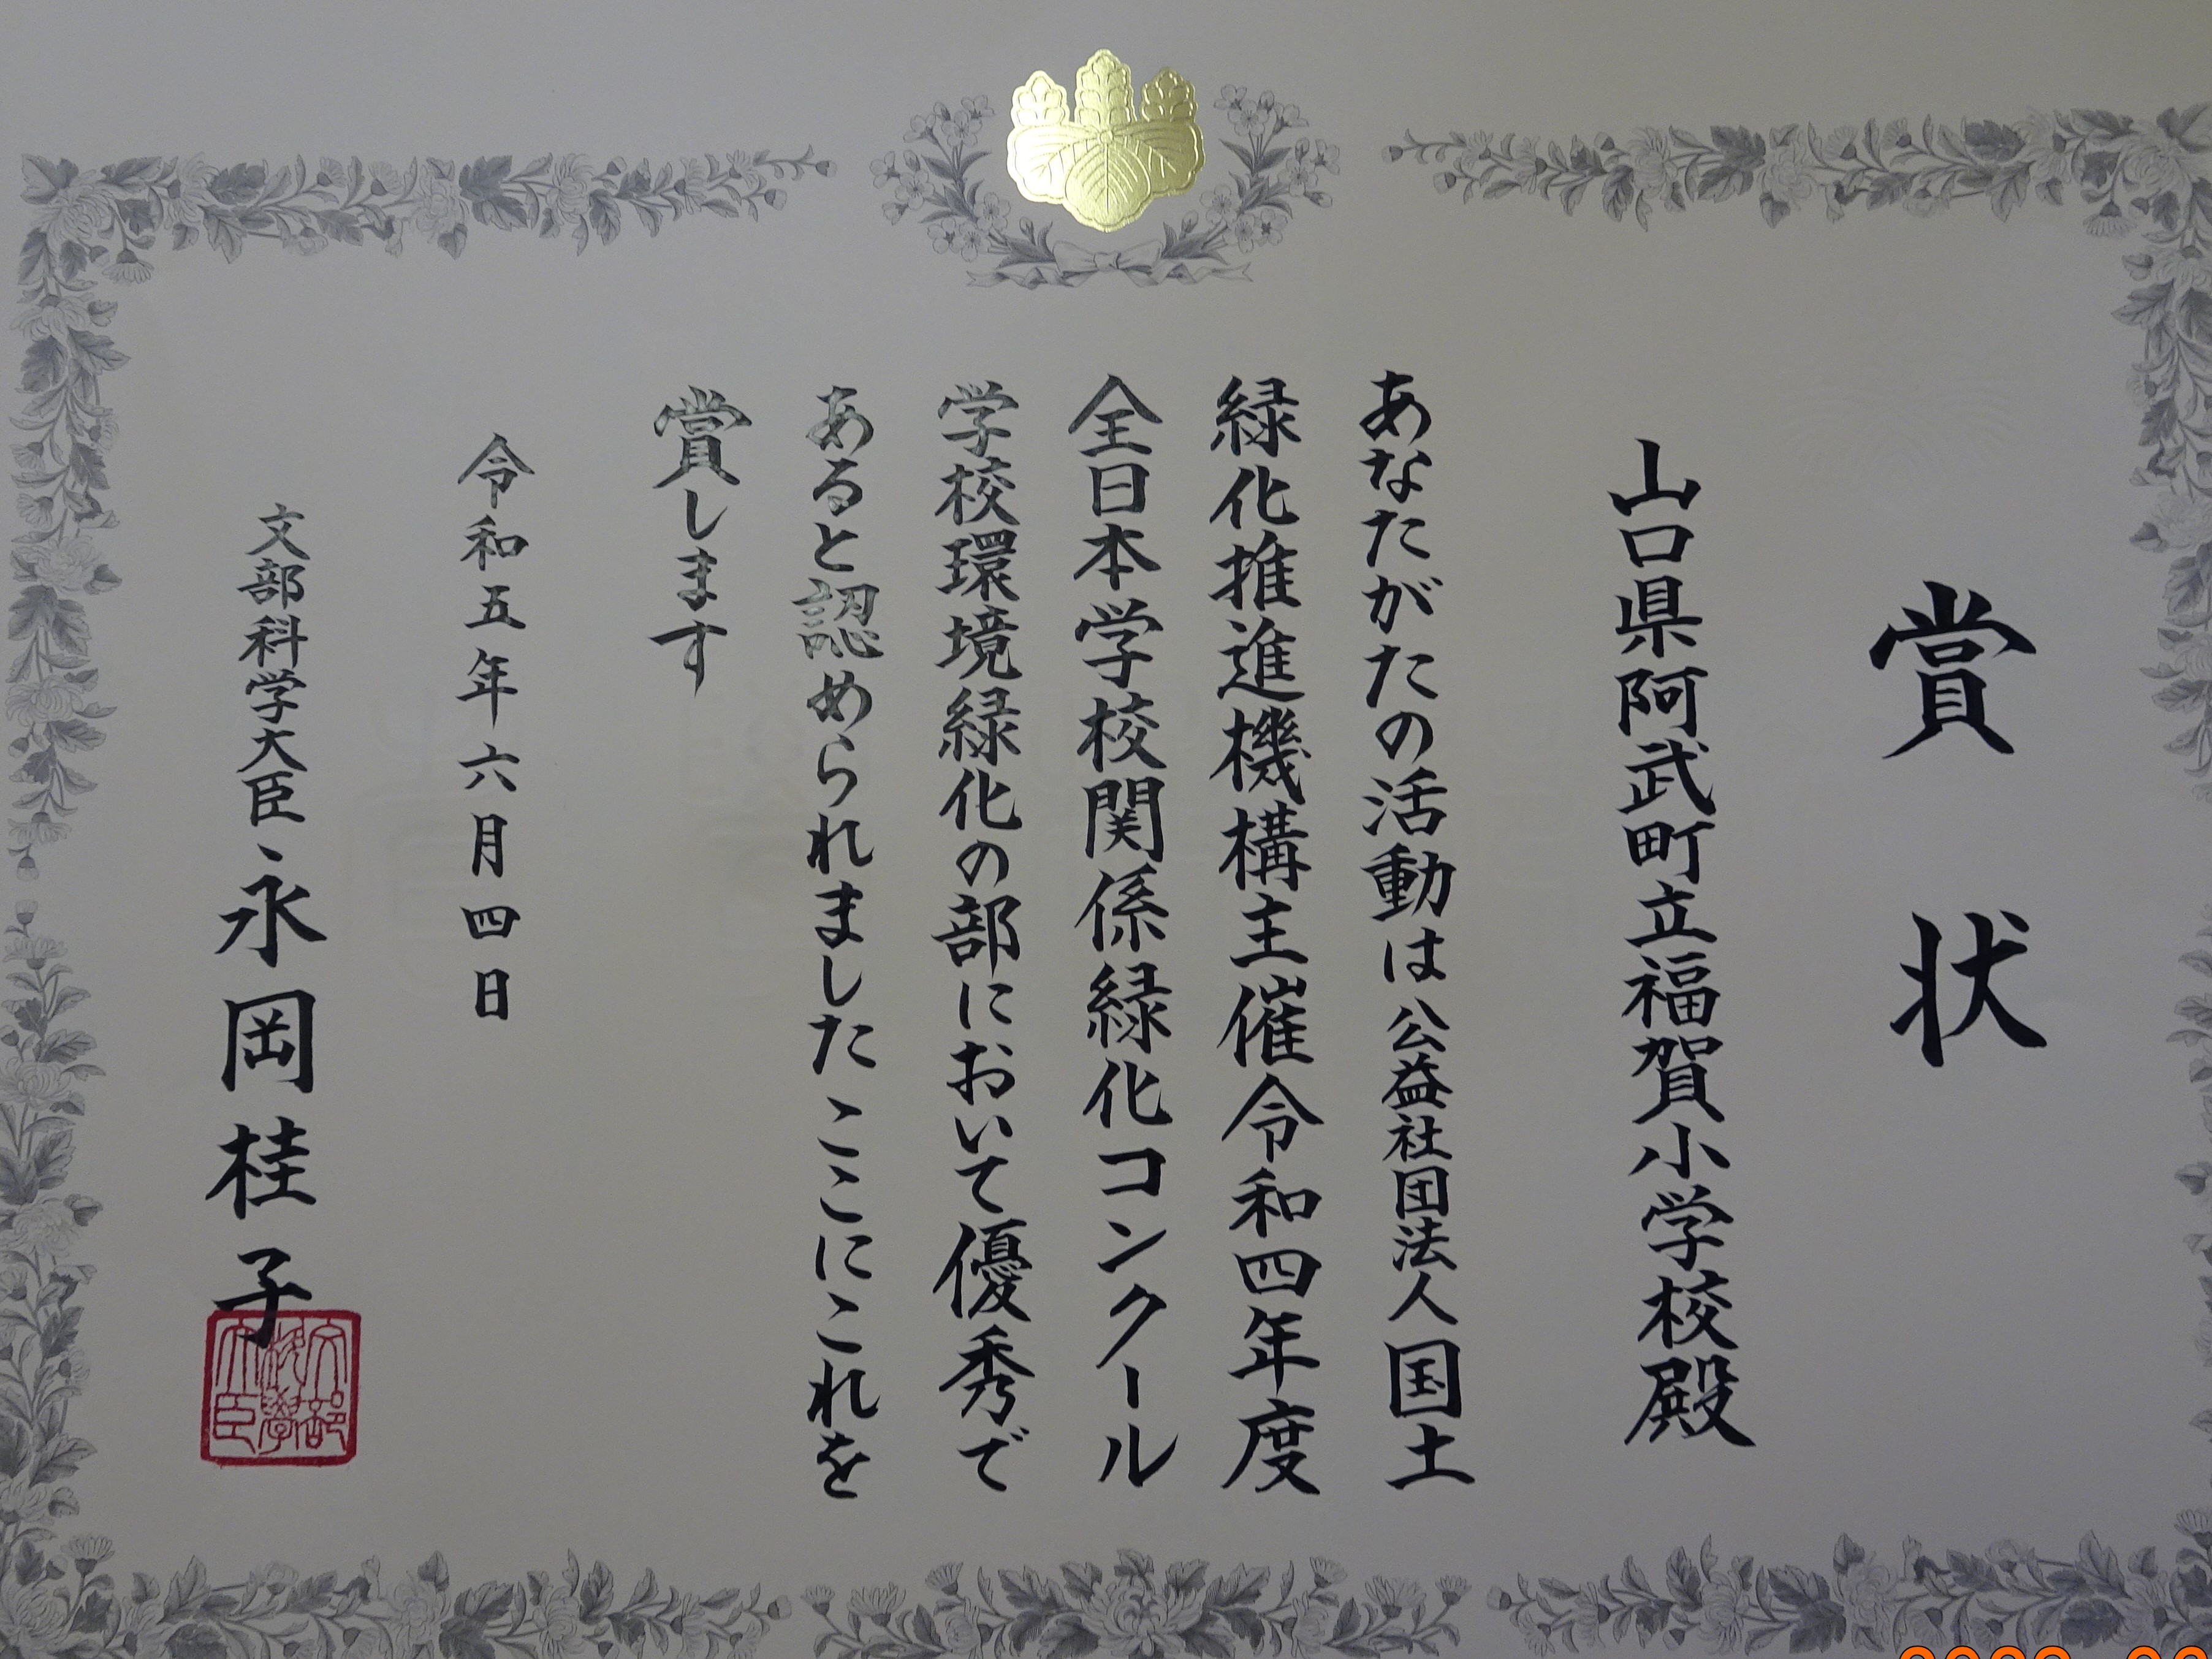 賞状
山口県阿武町立福賀小学校殿
あなたがたの活動は公益社団法人国土
緑化推進機構主催令和四年度
全日本学校関係緑化コンクール
学校環境緑化の部において優秀で
あると認められましたここにこれを
賞します
令和五年六月四日
文部科学大臣永岡桂子
文部科學大臣